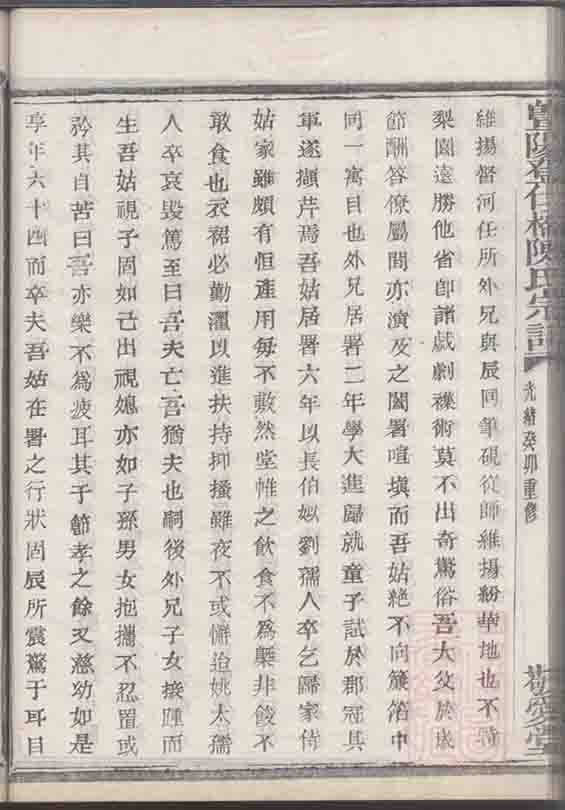 暨陽 橋陳氏宗譜
光緒癸卯重修
敬愛堂
維揚督河任所外兄與辰同筆硯從師維揚紛華地也不特
梨園遠勝他省即諸戲劇襍術莫不出奇驚俗吾大父於歲
節酬答僚屬間亦演及之闔署喧塡而吾姑絶不向簾箔中
同一寓目也外兄居署二年學大進歸就童子試於郡冠其
軍遂擷芹焉吾姑居署六年以長伯姒劉孺人卒乞歸家侍
姑家雖頗有恒產用每不敷然堂帷之飲食不爲槩非餕不
敢食也衣裙必勤濯以進扶持抑搔雖夜不或懈迨姚太孺
人卒哀毀篤至曰吾夫亡吾猶夫也嗣後外兄子女接踵而
生吾姑視子固如己出視媳亦如子孫男女抱攜不忍置或
矜其自苦曰吾亦樂不爲疲耳其于節孝之餘又慈幼如是
享年六十四而卒夫吾姑在署之行狀固辰所震驚于耳目